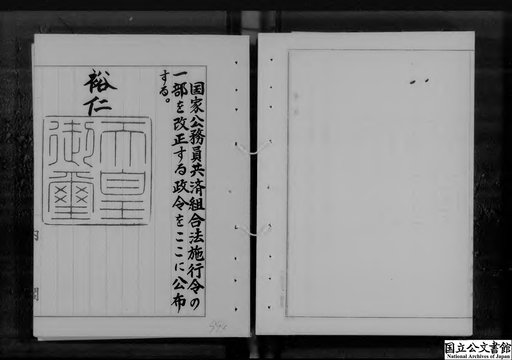 国家公務員共済組合法施行令の
一部を改正する政令をここに公布
する。
裕仁
天皇
御璽
内
閣
国立公文書館
National Archives of Japan